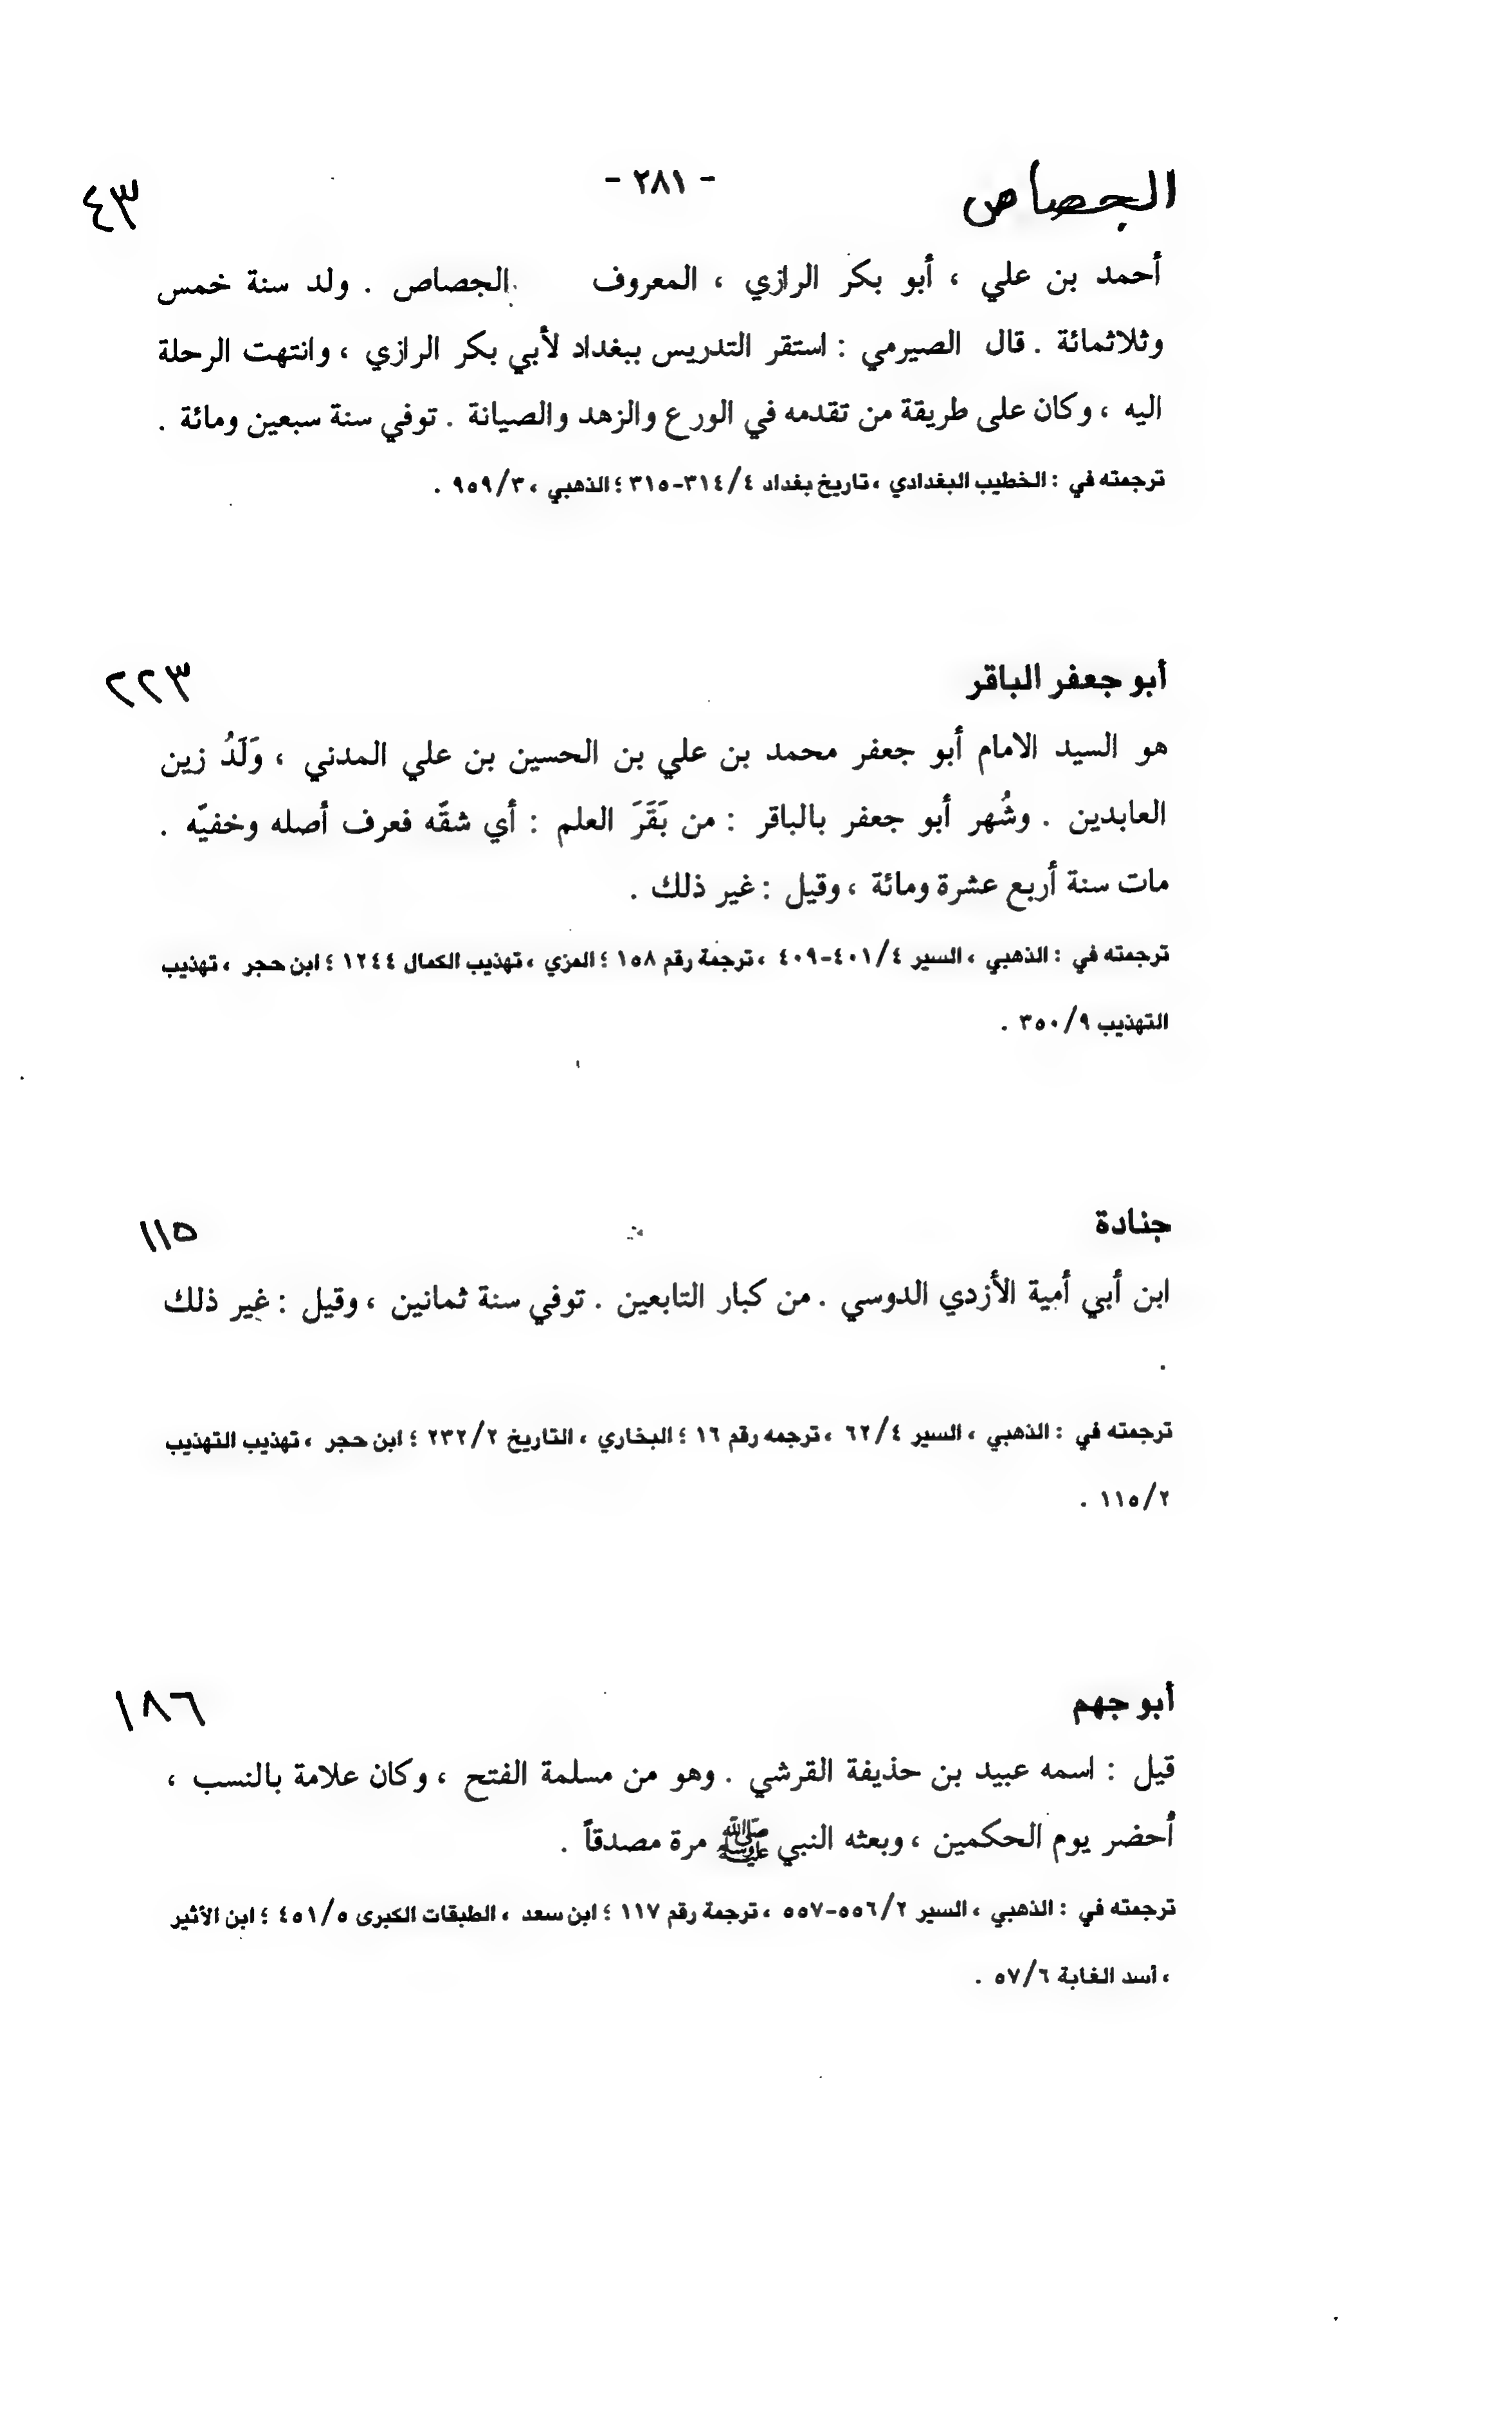 - ٢٨١ -
الجصاص ٤٣
أحمد بن علي ، أبو بكر الرازي ، المعروف الجصاص . ولد سنة خمس
وثلاثمائة . قال الصيرمي : استقر التدريس ببغداد لأبي بكر الرازي ، وانتهت الرحلة
اليه ، وكان على طريقة من تقدمه في الورع والزهد والصيانة . توفي سنة سبعين ومائة .
ترجمته في : الخطيب البغدادي ، تاريخ بغداد ٣١٤/٤-٣١٥ ؛ الذهبي ، ٩٥٩/٣ .
أبو جعفر الباقر ٢٢٣
هو السيد الامام أبو جعفر محمد بن علي بن الحسين بن علي المدني ، وَلَدُ زين
العابدين . وشُهر أبو جعفر بالباقر : من بَقَرَ العلم : أي شقّه فعرف أصله وخفيّه .
مات سنة أربع عشرة ومائة ، وقيل : غير ذلك .
ترجمته في : الذهبي ، السير ٤٠١/٤-٤٠٩ ، ترجمة رقم ١٥٨ ؛ المزي ، تهذيب الكمال ١٢٤٤ ؛ ابن حجر ، تهذيب
التهذيب ٣٥٠/٩ .
جنادة ١١٥
ابن أبي أمية الأزدي الدوسي . من كبار التابعين . توفي سنة ثمانين ، وقيل : غير ذلك
.
ترجمته في : الذهبي ، السير ٦٢/٤ ، ترجمه رقم ١٦ ؛ البخاري ، التاريخ ٢٣٢/٢ ؛ ابن حجر ، تهذيب التهذيب
١١٥/٢ .
أبو جهم ١٨٦
قيل : اسمه عبيد بن حذيفة القرشي . وهو من مسلمة الفتح ، وكان علامة بالنسب ،
أحضر يوم الحكمين ، وبعثه النبي ﷺ مرة مصدقاً .
ترجمته في : الذهبي ، السير ٥٥٦/٢-٥٥٧ ، ترجمة رقم ١١٧ ؛ ابن سعد ، الطبقات الكبرى ٤٥١/٥ ؛ ابن الأثير
، أسد الغابة ٥٧/٦ .